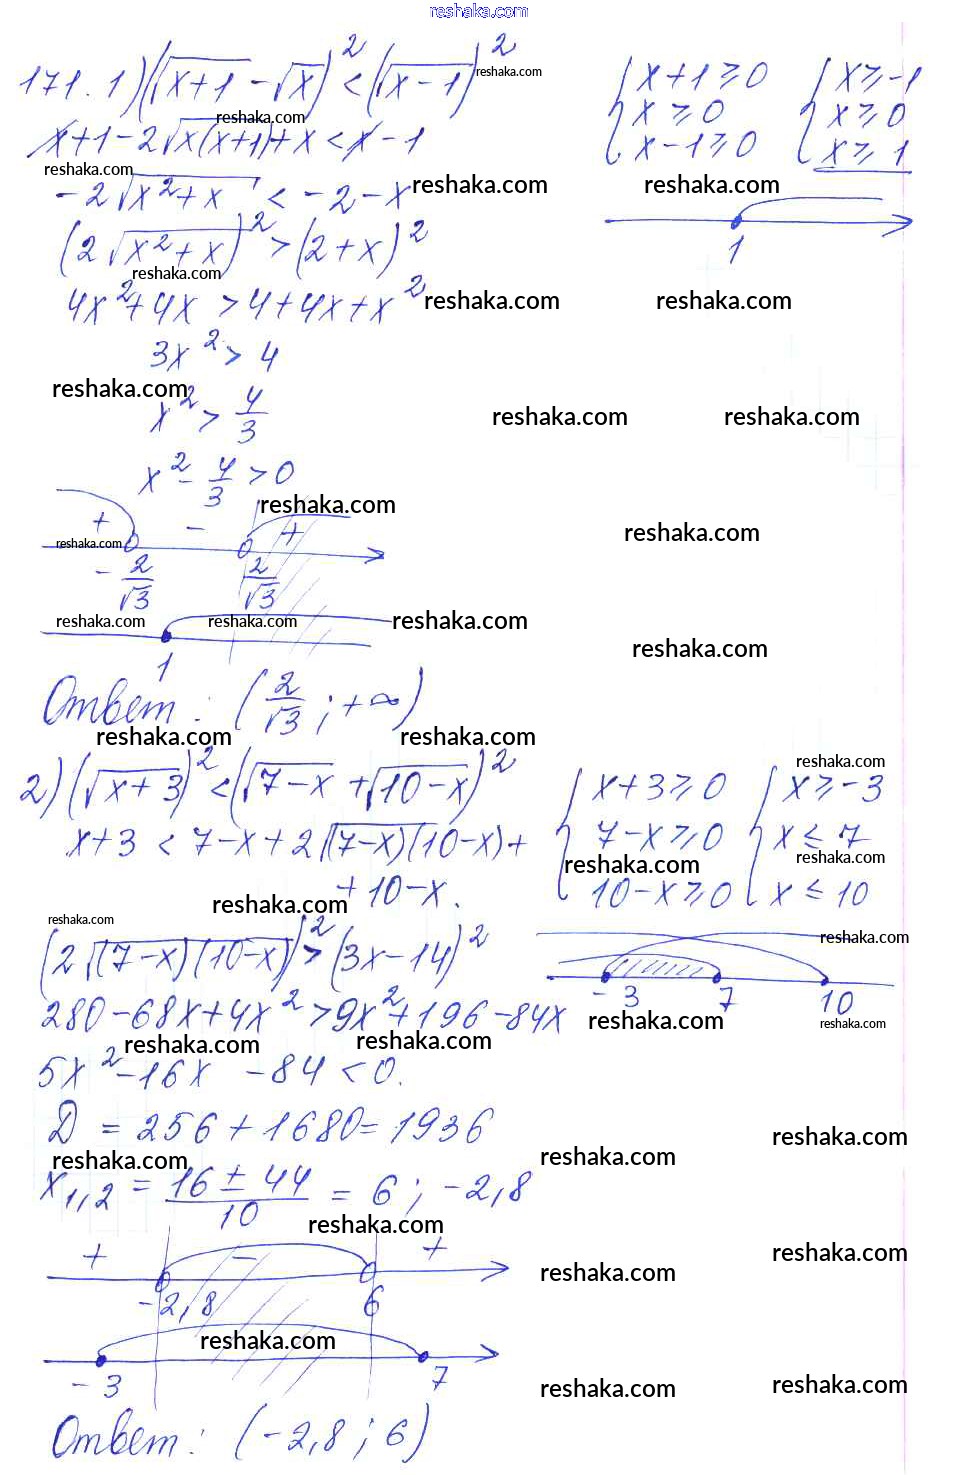 reshaka.com
171. 1) (√(x+1) - √x)² < (√(x-1))²
{ x+1 ≥ 0 { x ≥ -1
x ≥ 0 x ≥ 0
x-1 ≥ 0 x ≥ 1
reshaka.com
reshaka.com
x+1-2√(x(x+1))+x < x-1
reshaka.com
-2√(x²+x) < -2-x
reshaka.com reshaka.com
1
(2√(x²+x))² > (2+x)²
reshaka.com
4x²+4x > 4+4x+x²
reshaka.com reshaka.com
3x² > 4
reshaka.com
x² > 4/3
reshaka.com reshaka.com
x² - 4/3 > 0
reshaka.com
+ - +
reshaka.com reshaka.com
-2/√3 2/√3
reshaka.com reshaka.com reshaka.com
1
reshaka.com
Ответ: (2/√3; +∞)
reshaka.com reshaka.com
2) (√(x+3))² < (√(7-x) + √(10-x))²
reshaka.com
{ x+3 ≥ 0 { x ≥ -3
7-x ≥ 0 x ≤ 7
10-x ≥ 0 x ≤ 10
x+3 < 7-x+2√((7-x)(10-x))+
reshaka.com reshaka.com
+10-x.
reshaka.com
reshaka.com
(2√((7-x)(10-x)))² > (3x-14)²
reshaka.com
-3 7 10
280-68x+4x² > 9x²+196-84x
reshaka.com reshaka.com
reshaka.com reshaka.com
5x²-16x -84 < 0.
D = 256+1680=1936
reshaka.com reshaka.com reshaka.com
x₁,₂ = (16 ± 44)/10 = 6; -2,8
reshaka.com
+ - +
reshaka.com reshaka.com
-2,8 6
reshaka.com
-3 7
reshaka.com reshaka.com
Ответ: (-2,8; 6)